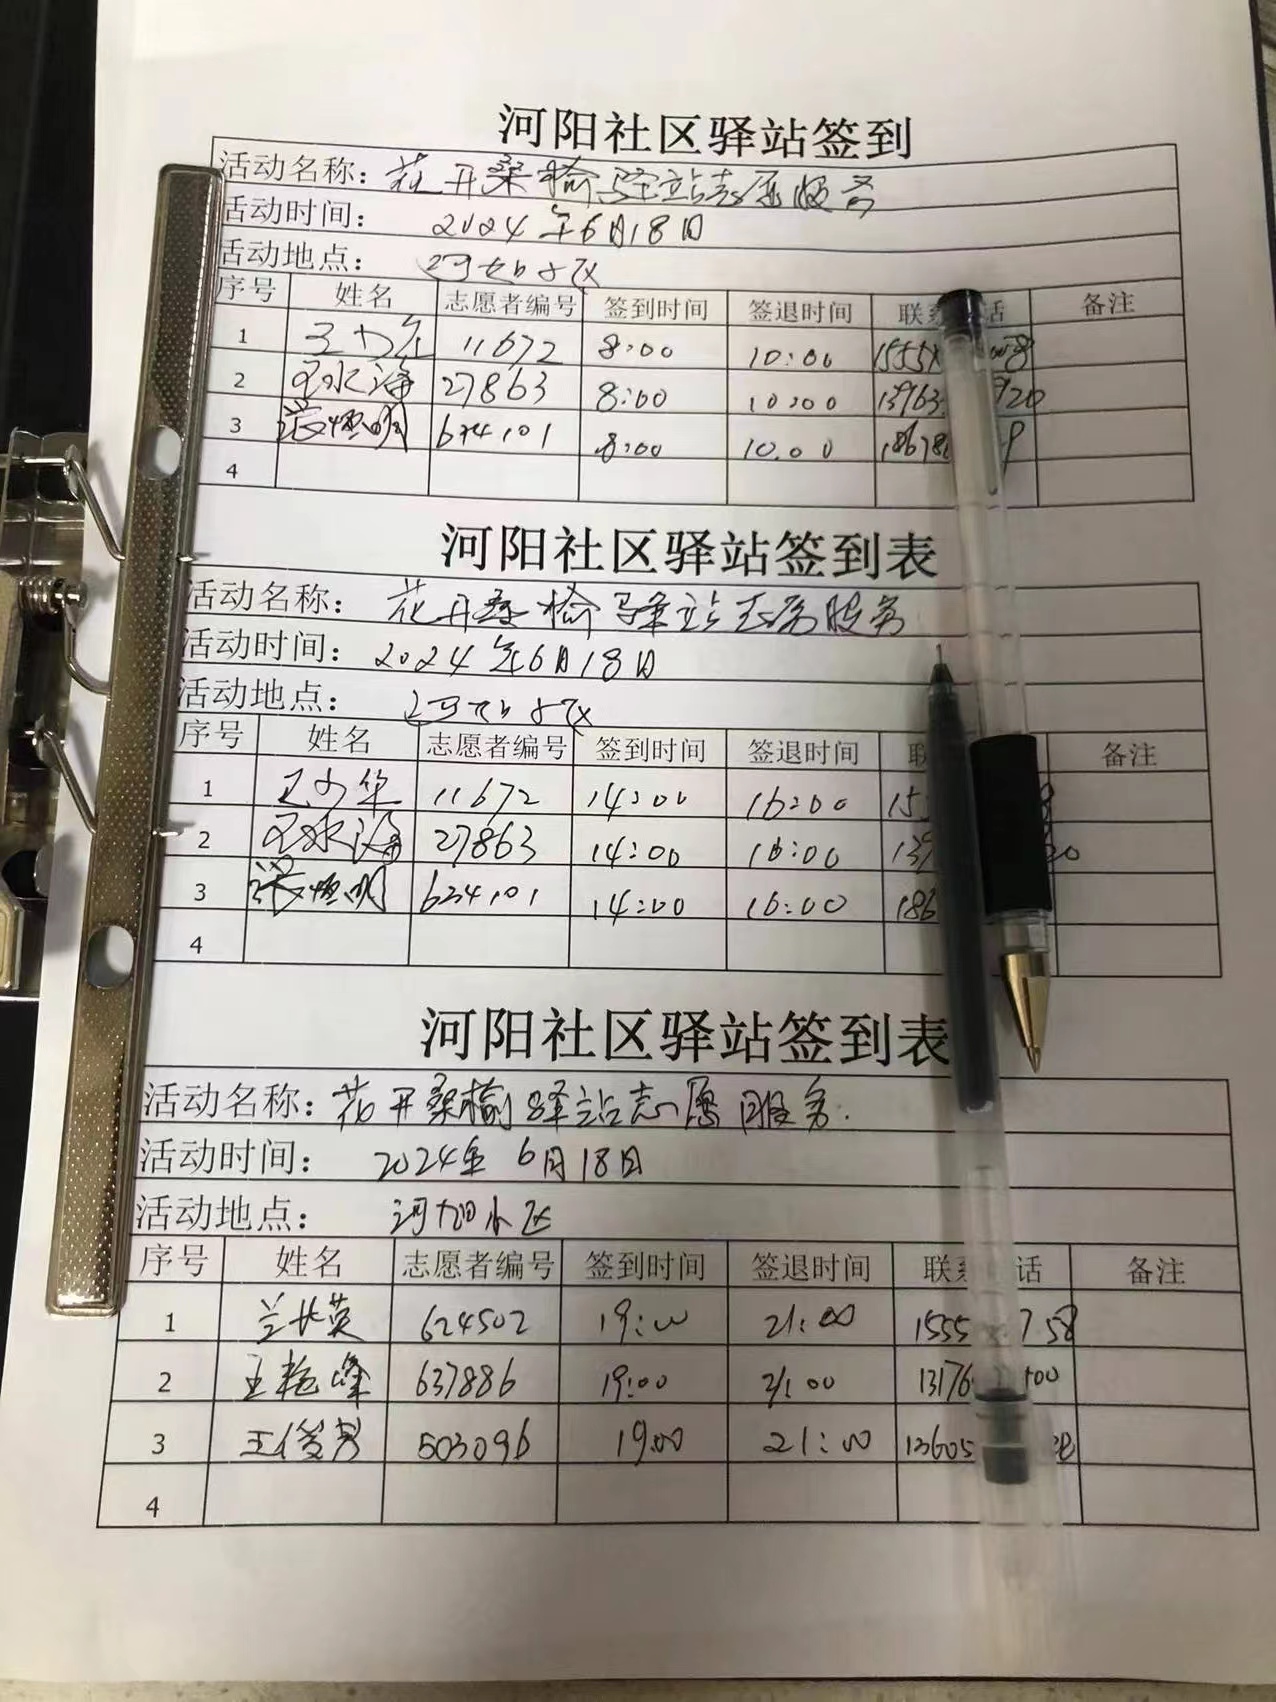 河阳社区驿站签到
活动名称：花开桑榆驿站志愿服务
活动时间：2024年6月18日
活动地点：
序号 姓名 志愿者编号 签到时间 签退时间 联系 话 备注
1 11672 8:00 10:00
2 27863 8:00 10:00 13963 920
3 634101 8:00 10:00
4
河阳社区驿站签到表
活动名称：花开桑榆驿站志愿服务
活动时间：2024年6月18日
活动地点：
序号 姓名 志愿者编号 签到时间 签退时间 联 备注
1 王少华 11672 14:00 16:00 15
2 27863 14:00 16:00 139
3 634101 14:00 16:00 186
4
河阳社区驿站签到表
活动名称：花开桑榆驿站志愿服务.
活动时间：2024年 6月18日
活动地点：河阳小区
序号 姓名 志愿者编号 签到时间 签退时间 联系 话 备注
1 兰长英 624502 19:00 21:00 1555 758
2 王艳峰 637886 19:00 21:00 13176 00
3 王俊芳 503096 19:00 21:00 13605
4